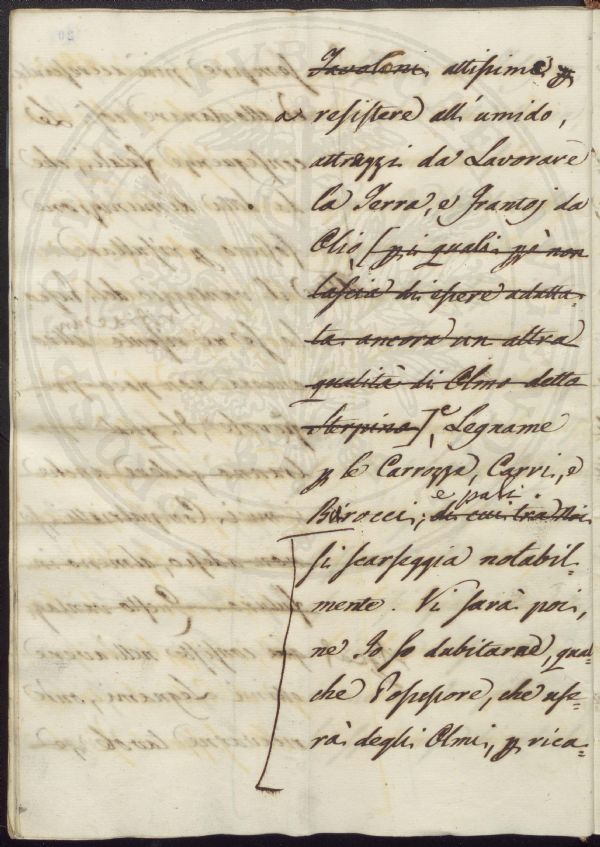 Tavoloni attissime p
a resistere all'umido,
attrazzi da Lavorare
la Terra, e Frantoj da
Olio, [p i quali p è non
lascia di essere adatta-
ta ancora un altra
qualità di Olmo detto
Sterpina] e, Legname
p le Carrozza, Carri, e
e pali
Barocci, di cui tra Noi
si scarseggia notabil-
mente. Vi sarà poi,
ne Io so dubitarne, qual-
che Possessore, che use-
rà degli Olmi, p rica-